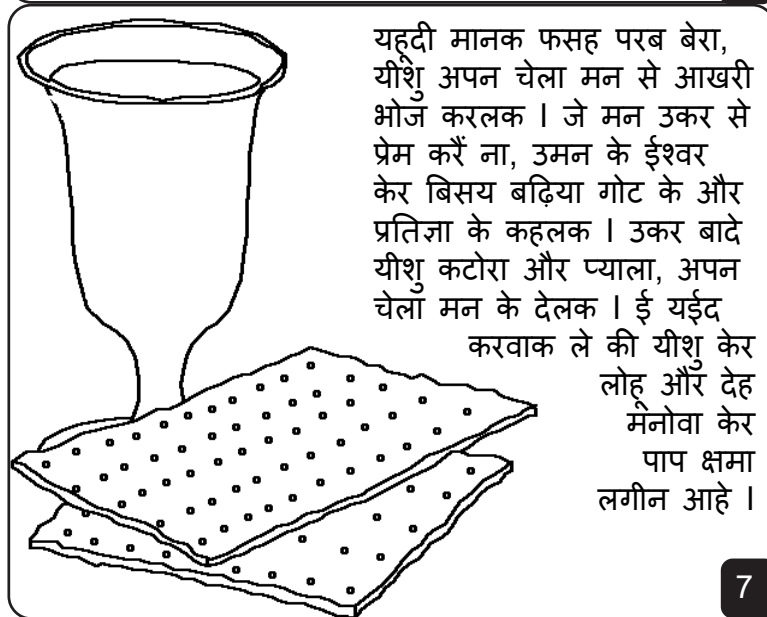 यहूदी मानक फसह परब बेरा,
यीशु अपन चेला मन से आखरी
भोज करलक । जे मन उकर से
प्रेम करैं ना, उमन के ईश्वर
केर बिसय बढ़िया गोट के और
प्रतिज्ञा के कहलक । उकर बादे
यीशु कटोरा और प्याला, अपन
चेला मन के देलक । ई यईद
करवाक ले की यीशु केर
लोहू और देह
मनोवा केर
पाप क्षमा
लगीन आहे ।
7